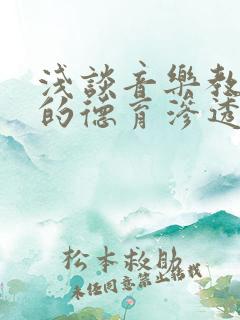 浅談音樂教
的德育滲透
松本救助
未经同意禁止转载